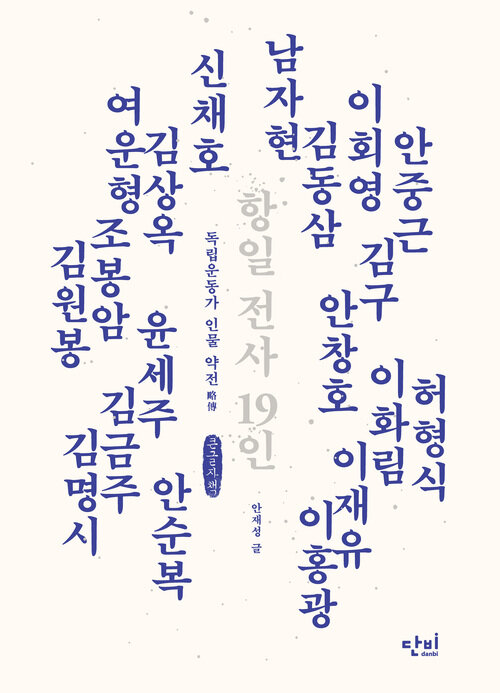 안중근
이회영
남자현
김동삼
신채호
김구
안창호
여운형
김상옥
허형식
이화림
조봉암
김원봉
윤세주
이재유
이홍광
김금주
김명시
안순복
항일 전사 19인
독립운동가 인물 약전 略傳
큰글자책
안재성 글
단비
danbi